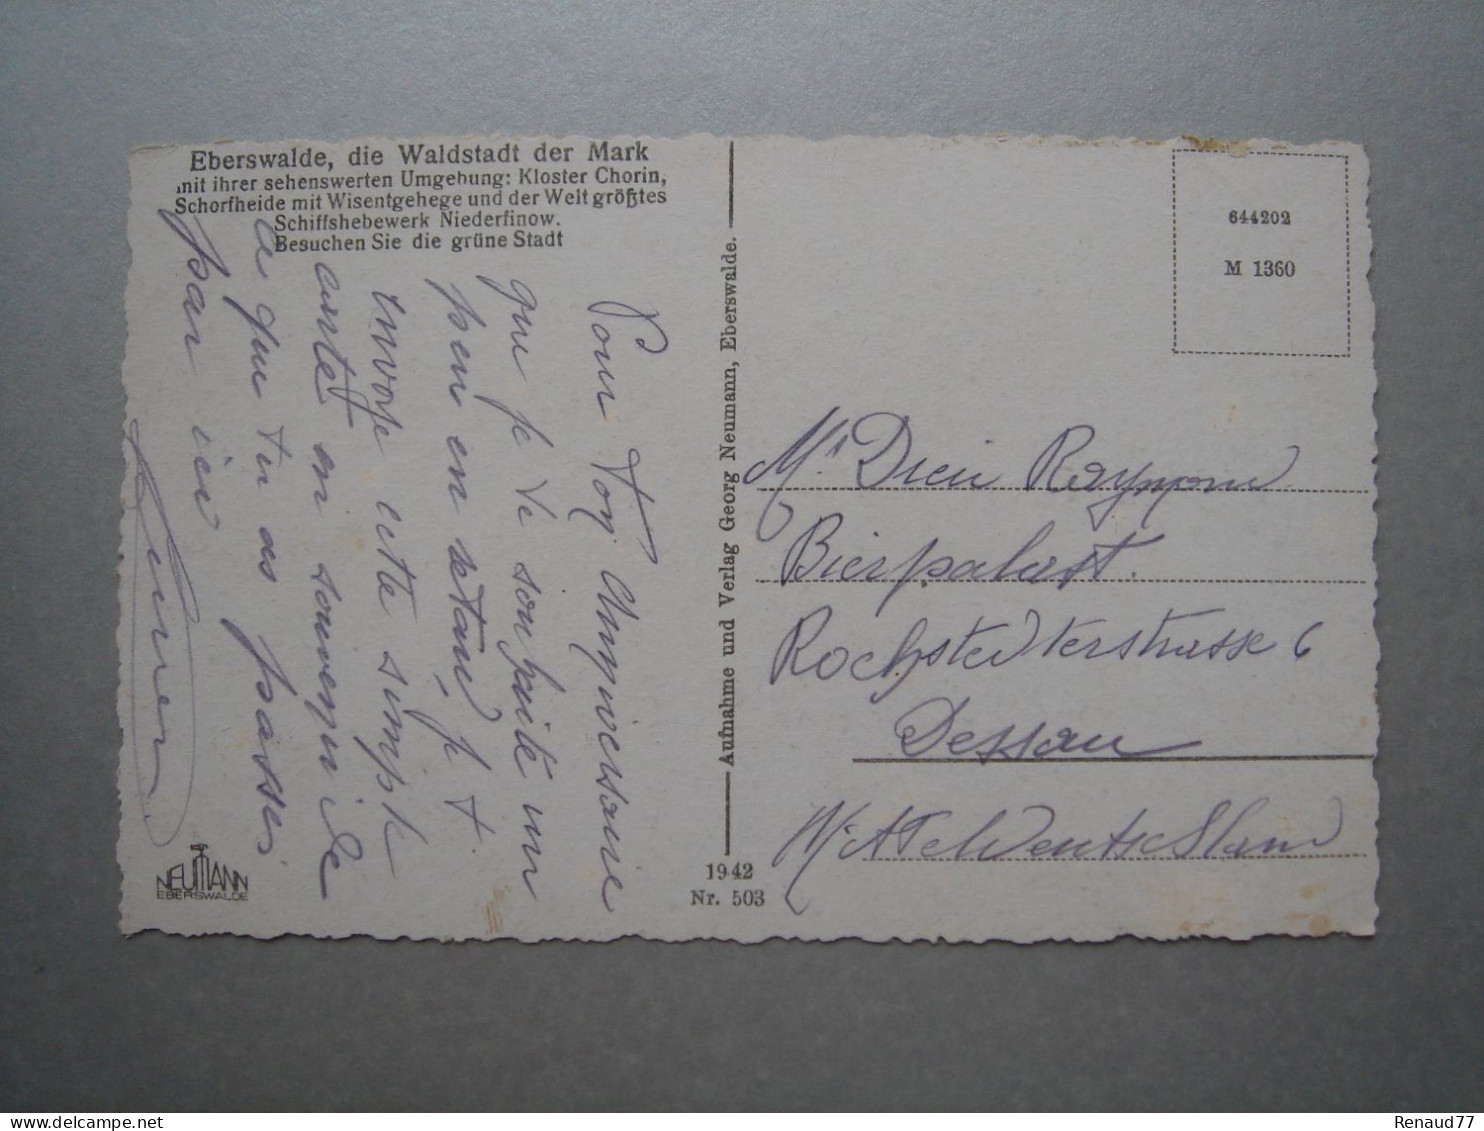 Eberswalde, die Waldstadt der Mark
mit ihrer sehenswerten Umgebung: Kloster Chorin,
Schorfheide mit Wisentgehege und der Welt größtes
Schiffshebewerk Niederfinow.
Besuchen Sie die grüne Stadt
Pour toy Anniversaire
que je te souhaite un
peu en retard, je t
envoye cete simple
carte en souvenir de
ce que tu as passer
par ici
NEUMANN
EBERSWALDE
Aufnahme und Verlag Georg Neumann, Eberswalde.
1942
Nr. 503
644202
M 1360
Mr Drein Raymond
Bierpalast.
Rochstedterstrasse 6
Dessau
Mitteldeutschland
Renaud77